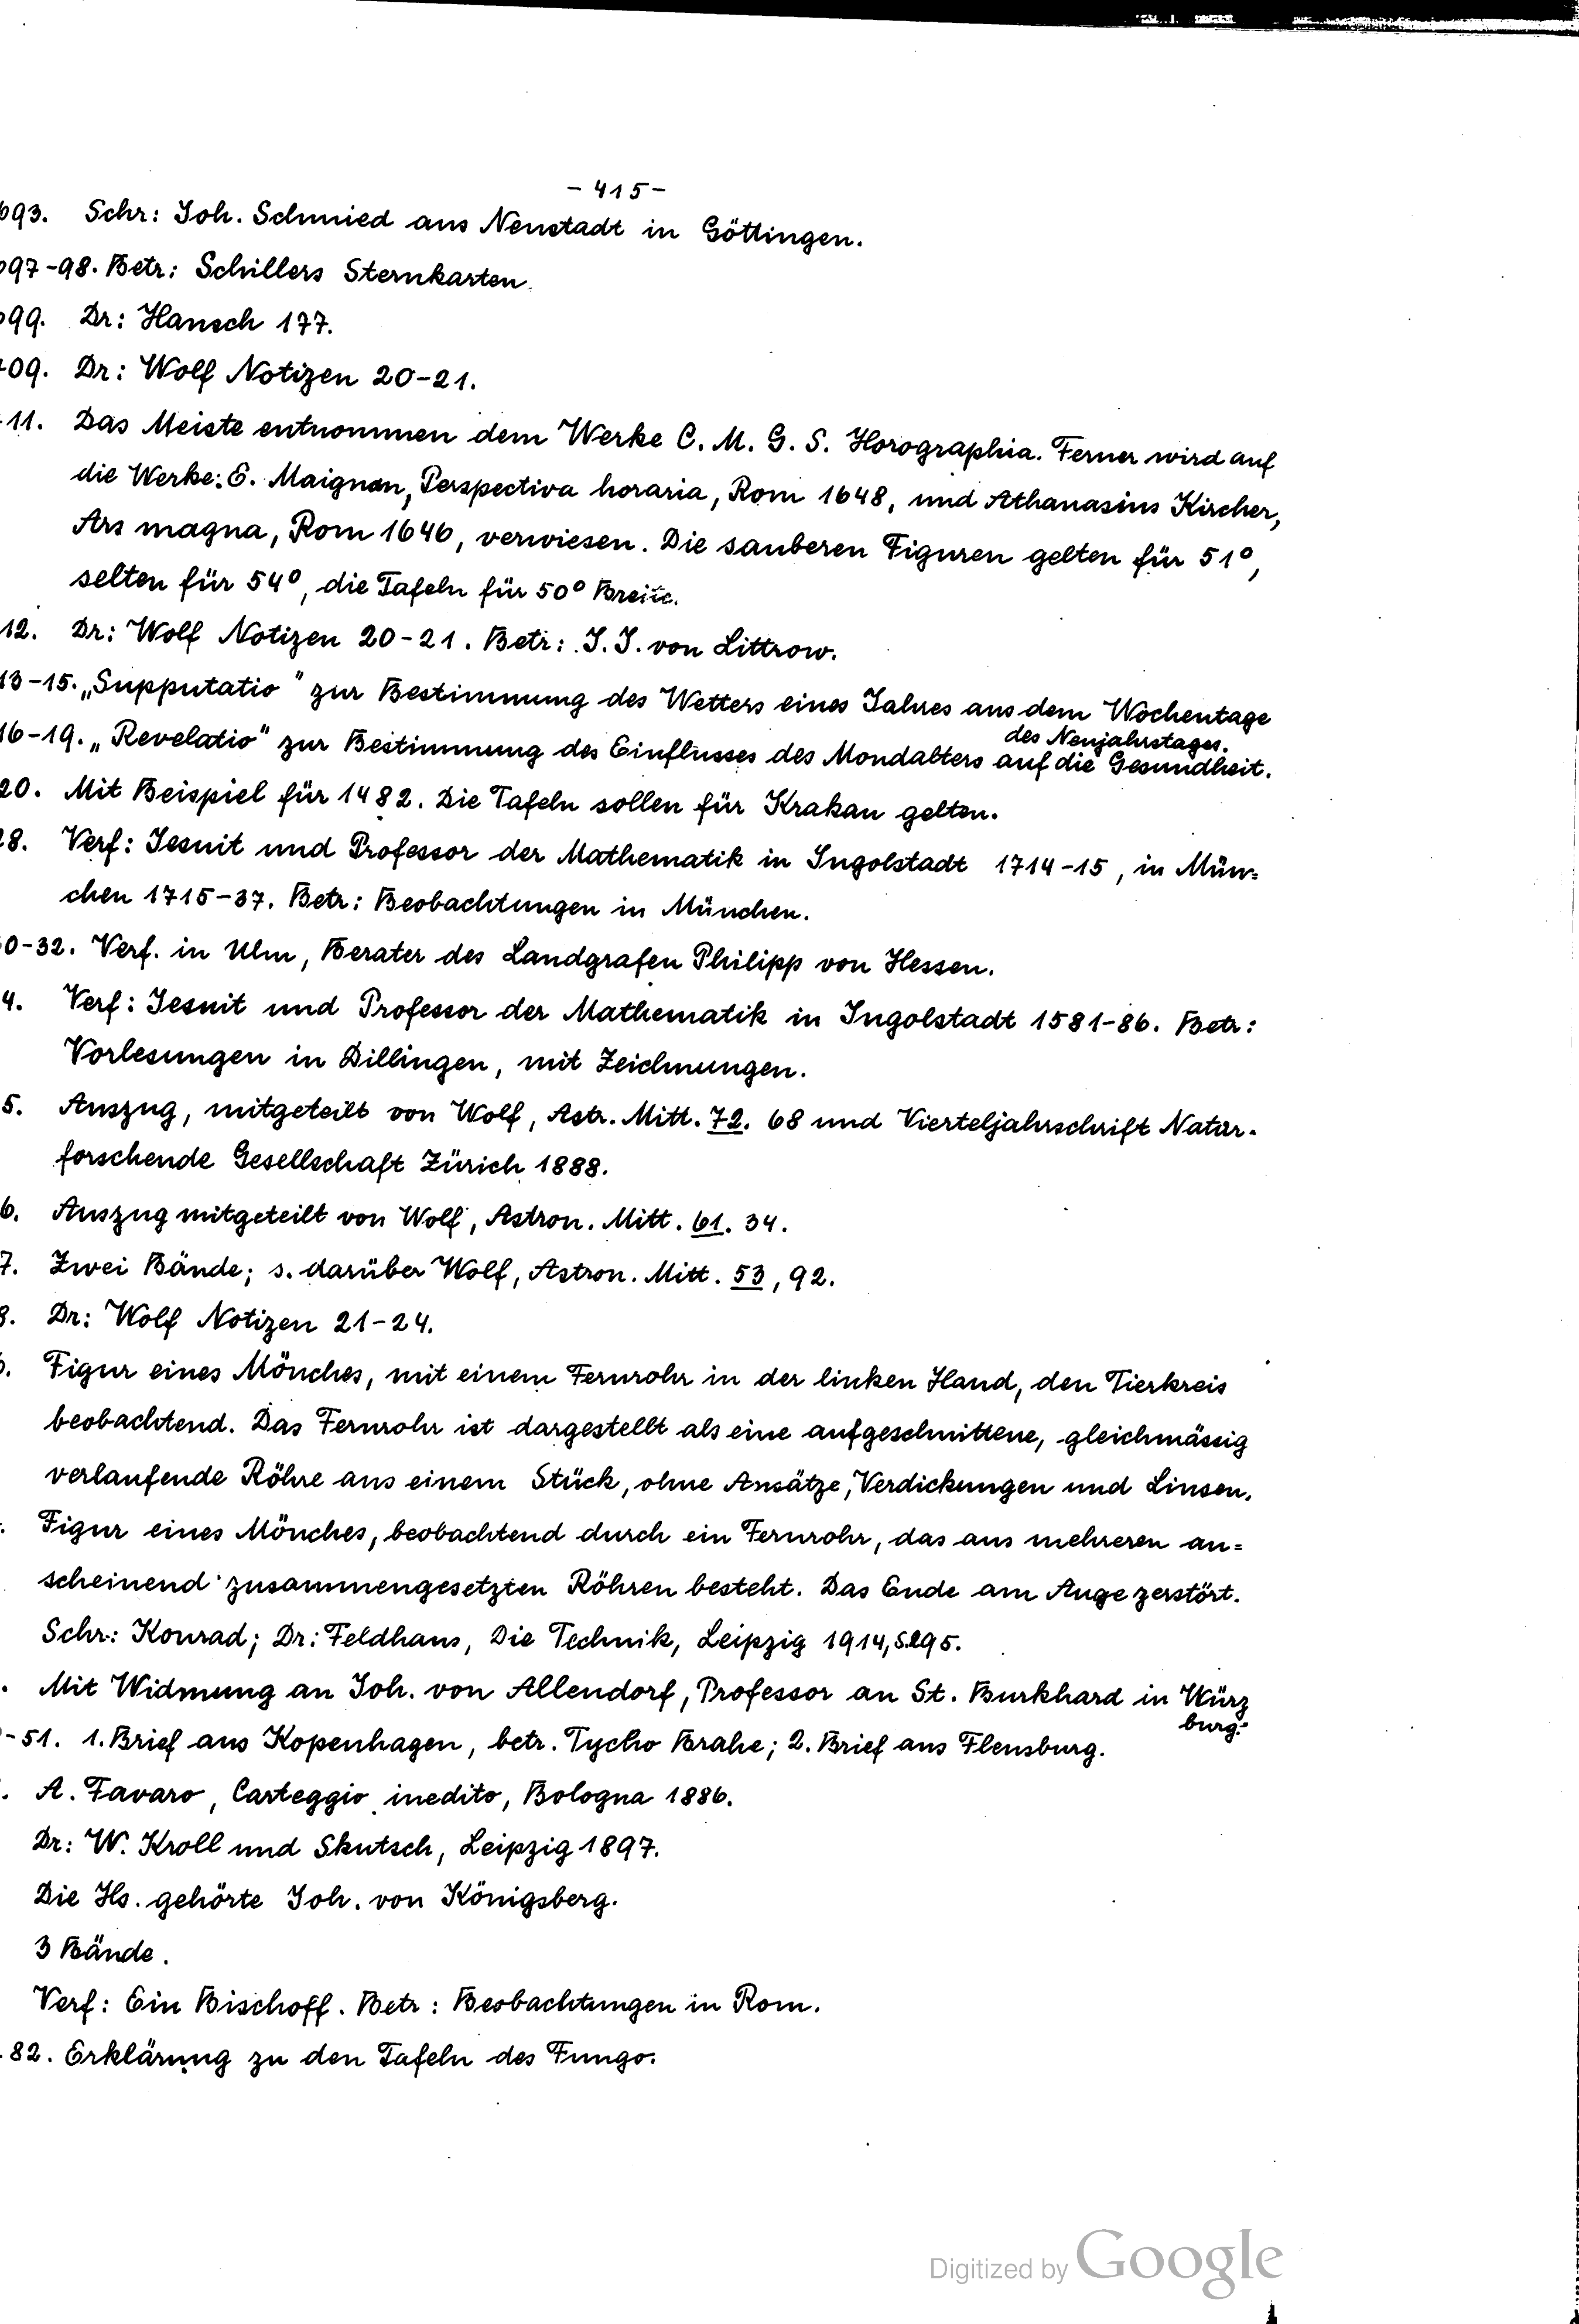 - 415 -
693. Schr: Joh. Schmied aus Neustadt in Göttingen.
97-98. Betr: Schillers Sternkarten.
99. Dr: Hansch 177.
09. Dr: Wolf Notizen 20-21.
11. Das Meiste entnommen dem Werke C. M. G. S. Horographia. Ferner wird auf
die Werke: E. Maignan, Perspectiva horaria, Rom 1648, und Athanasius Kircher,
Ars magna, Rom 1646, verwiesen. Die sauberen Figuren gelten für 51°,
selten für 54°, die Tafeln für 50° Breite.
12. Dr: Wolf Notizen 20-21. Betr: J. J. von Littrow.
13-15. „Supputatio" zur Bestimmung des Wetters eines Jahres aus dem Wochentage
des Neujahrstages.
16-19. „Revelatio" zur Bestimmung des Einflusses des Mondalters auf die Gesundheit.
20. Mit Beispiel für 1482. Die Tafeln sollen für Krakau gelten.
28. Verf: Jesuit und Professor der Mathematik in Ingolstadt 1714-15, in Mün=
chen 1715-37. Betr: Beobachtungen in München.
0-32. Verf. in Ulm, Berater des Landgrafen Philipp von Hessen.
4. Verf: Jesuit und Professor der Mathematik in Ingolstadt 1581-86. Betr:
Vorlesungen in Dillingen, mit Zeichnungen.
5. Auszug, mitgeteilt von Wolf, Astr. Mitt. 72. 68 und Vierteljahrschrift Natur-
forschende Gesellschaft Zürich 1888.
6. Auszug mitgeteilt von Wolf, Astron. Mitt. 61. 34.
7. Zwei Bände; s. darüber Wolf, Astron. Mitt. 53, 92.
8. Dr: Wolf Notizen 21-24.
Figur eines Mönches, mit einem Fernrohr in der linken Hand, den Tierkreis
beobachtend. Das Fernrohr ist dargestellt als eine aufgeschnittene, gleichmässig
verlaufende Röhre aus einem Stück, ohne Ansätze, Verdickungen und Linsen.
Figur eines Mönches, beobachtend durch ein Fernrohr, das aus mehreren an=
scheinend zusammengesetzten Röhren besteht. Das Ende am Auge zerstört.
Schr: Konrad; Dr: Feldhaus, Die Technik, Leipzig 1914, S. 295.
Mit Widmung an Joh. von Allendorf, Professor an St. Burkhard in Würz
burg.
-51. 1. Brief aus Kopenhagen, betr. Tycho Brahe; 2. Brief aus Flensburg.
A. Favaro, Carteggio inedito, Bologna 1886.
Dr: W. Kroll und Skutsch, Leipzig 1897.
Die Hs. gehörte Joh. von Königsberg.
3 Bände.
Verf: Ein Bischoff. Betr: Beobachtungen in Rom.
82. Erklärung zu den Tafeln des Fungo.
Digitized by Google